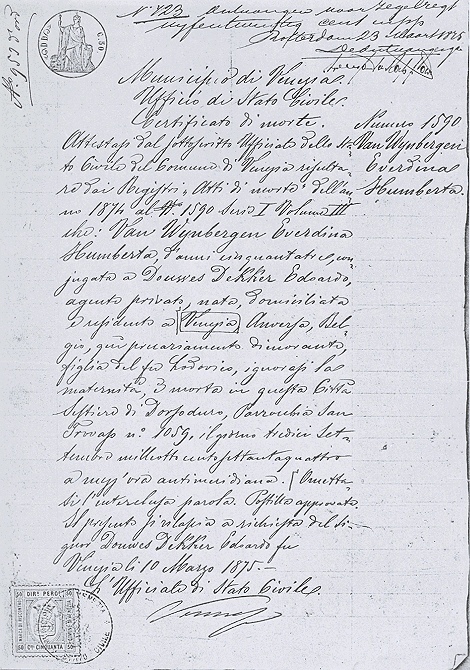 No. 723 Ontvangen voor zegelregt
vijftenwintig cent
Rotterdam 23 Maart 1875
C. 50
Municipio di Venezia
Ufficio di Stato Civile.
Certificato di morte.
Numero 1590
Van Wÿnbergen
Everdina
Humberta
Attestasi dal sottoscritto Ufficiale dello Sta-
to Civile del Comune di Venezia risulta-
re dai Registri, Atti di morte dell'an-
no 1874 al No. 1590 Serie I Volume III
che: Van Wÿnbergen Everdina
Humberta, d'anni cinquantatre, con-
jugata a Douwes Dekker Edoardo,
agente privato, nata, domiciliata
e residente a Venezia Anversa, Bel-
gio, qui precariamente dimorante,
figlia del fu Lodovico, ignorasi la
maternità, è morta in questa Città
Sestiere di Dorsoduro, Parrocchia San
Trovaso no. 1059, il giorno tredici Set-
tembre milleottocentosettantaquattro
a mezz'ora antimeridiana. (Ometta-
si l'interclusa parola. Postilla approvata.
Il presente si rilascia a richiesta del Si-
gnor Douwes Dekker Edoardo fu
Venezia li 10 Marzo 1875. -
L' Ufficiale di Stato Civile
50 DIR. PERD. 50
50 Ct. CINQUANTA 50